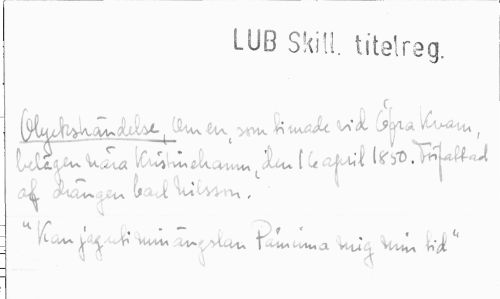 LUB Skill. titelreg.
Olyckshändelse, Om en, som timade vid Ögra Kvarn,
belägen nära Kristinehamn, den 16 april 1850. Författad
af drängen Carl Nilsson.
"Kan jag uti min ängslan Påminna mig min tid"